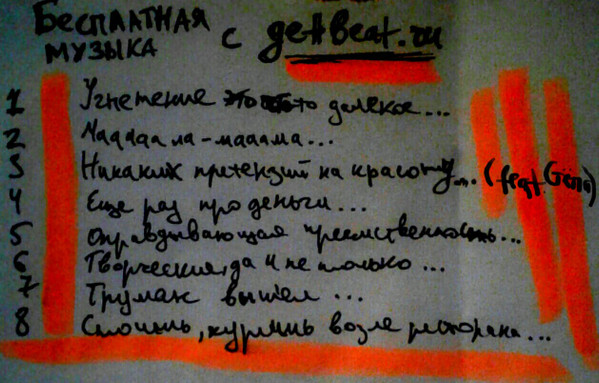 БЕСПЛАТНАЯ
МУЗЫКА с getbeat.ru
1 Угнетение то далекое...
2 Маадаа ла-маалма...
3 Никаких претензий на красоту... (feat.
4 Еще раз про деньги...
5 Оправдывающая преемственность...
6 Творческия, да и не только...
7 Трумак вышел...
8 Стоишь, куришь возле ресторана...